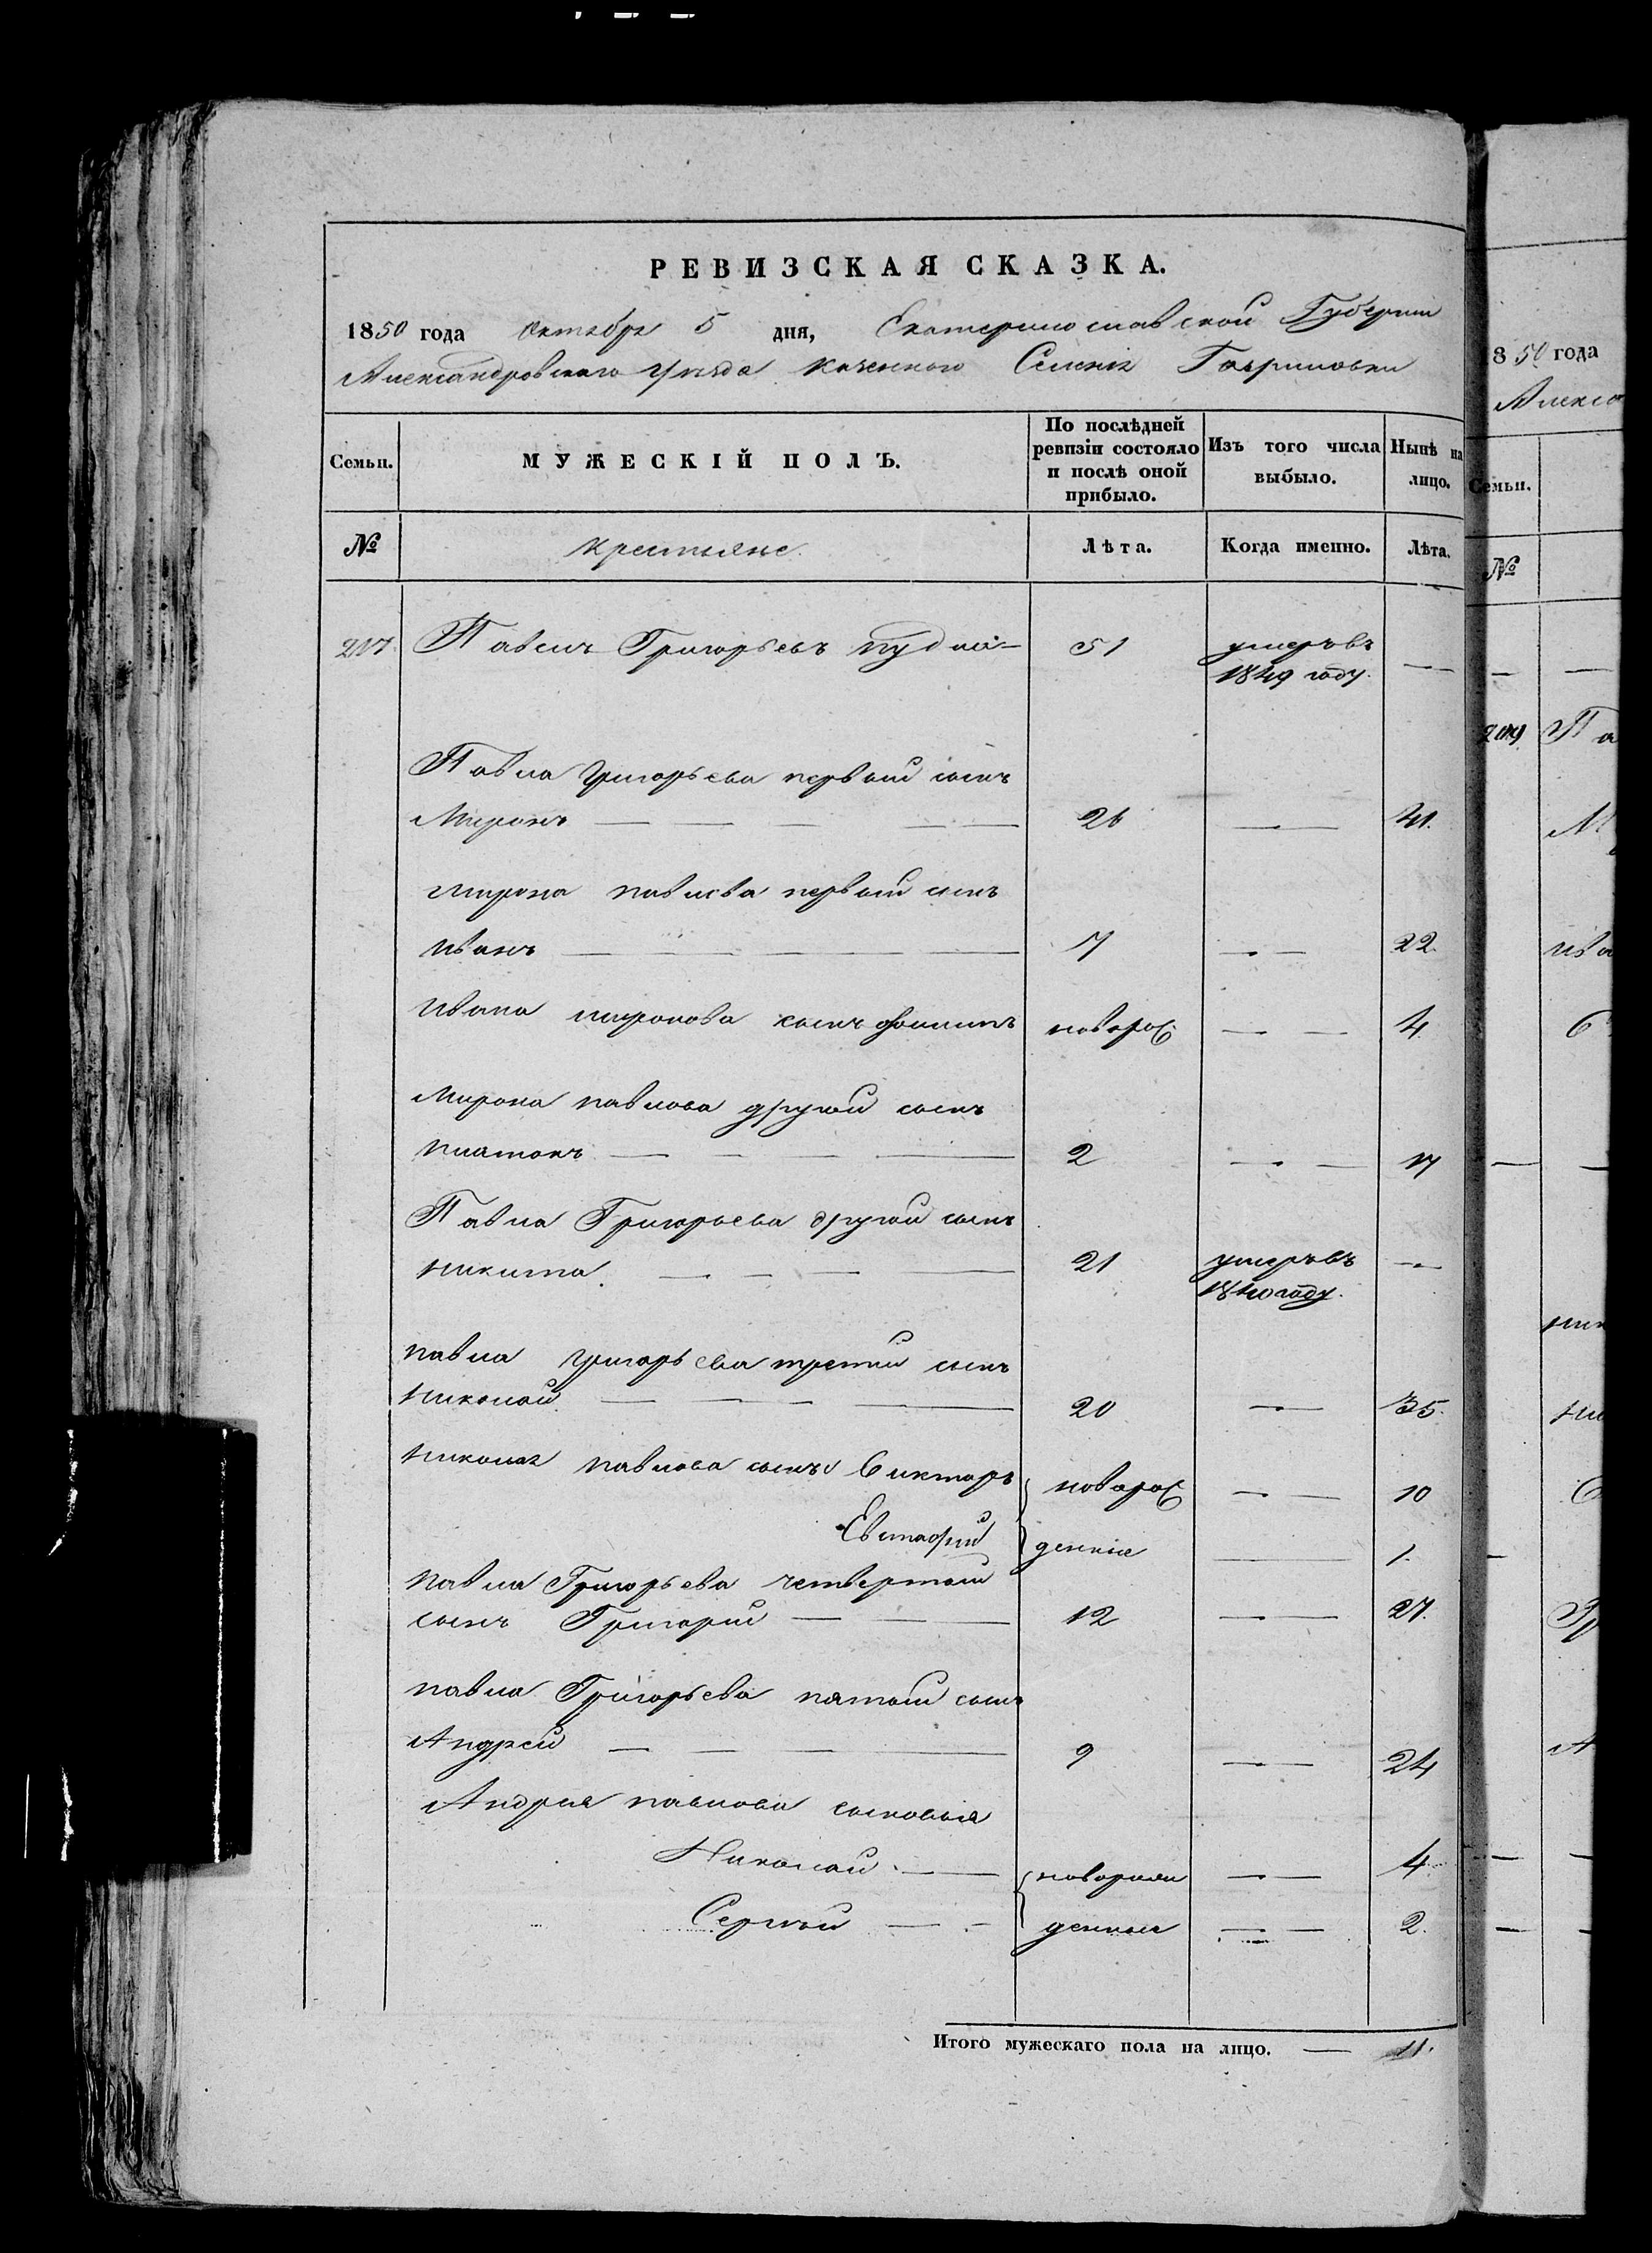 РЕВИЗСКАЯ СКАЗКА.
1850 года Октября 5 дня, Екатеринославской Губернии
Александровскаго уезда казенного Селения Гавриловки
Семьи. МУЖЕСКІЙ ПОЛЪ. По послѣдней ревизіи состояло и послѣ оной прибыло. Изъ того числа выбыло. Нынѣ на лицо.
№ крестьяне. Лѣта. Когда именно. Лѣта.
217. Павелъ Григорьевъ 51 умеръ въ —
1849 году.
Павла Григорьева первый сынъ
Миронъ — — — — — 26 — 41.
Мирона павлова первый сынъ
иванъ — — — — — 7 — — 22.
Ивана миронова сынъ филипъ новорож — — 4
Мирона павлова другой сынъ
платонъ — — — — 2 — — 17
Павла Григорьева другой сынъ
никита. — — — — 21 умеръ въ —
1840 году.
павла григорьева третий сынъ
николай — — — — 20 — 35.
николая павлова сынъ Викторъ новорож — — 10
Евстафий денные — 1.
павла Григорьева четвертый
сынъ Григорий — — 12 — — 27.
павла Григорьева пятый сынъ
Андрей — — — — 9 — 24
Андрея павлова сыновья
Николай — новорож — — 4
Сергъй — — денные — — 2.
Итого мужескаго пола на лицо. — 11.
1850 года
Алекса
Семьи.
№
219 Па
М
ива
ник
Гр
А